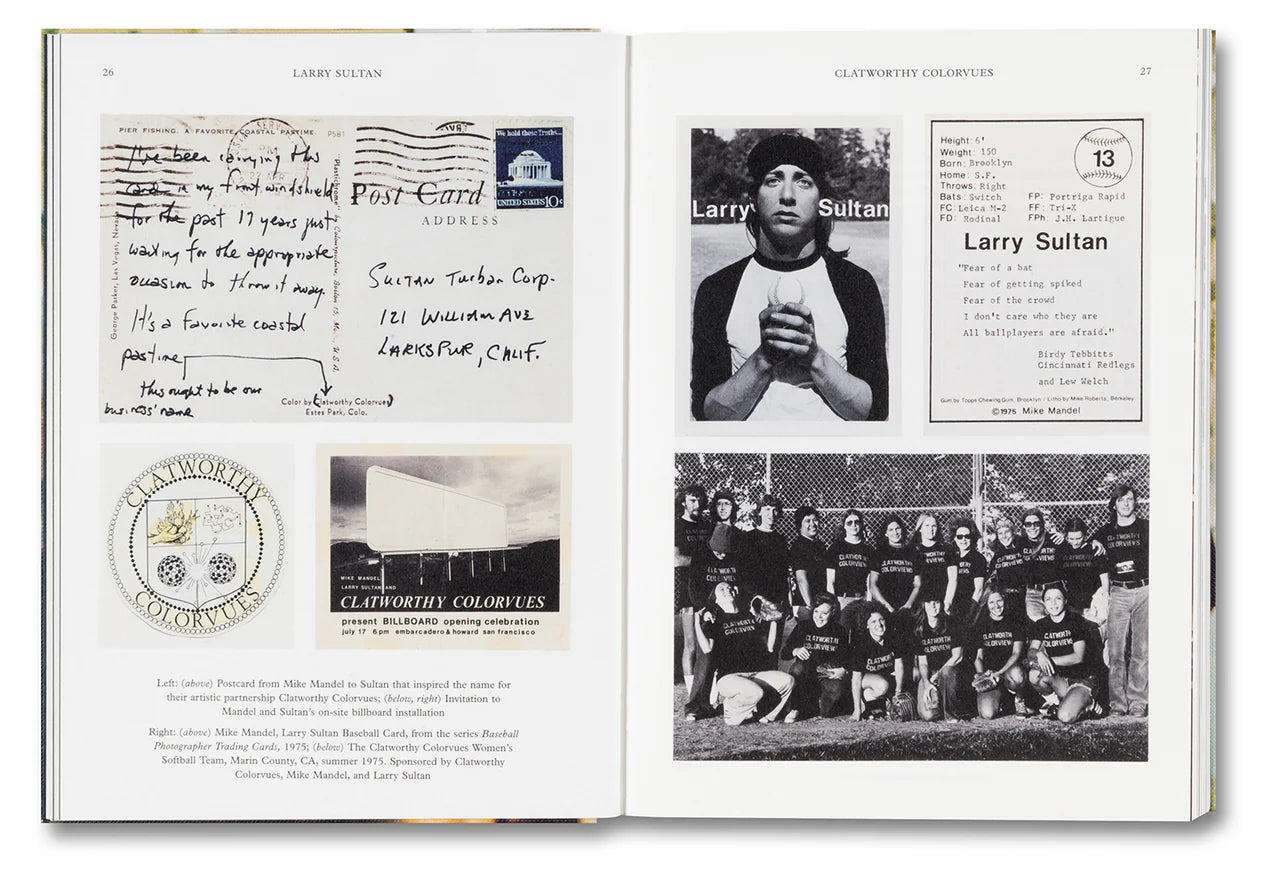 26
LARRY SULTAN
PIER FISHING. A FAVORITE COASTAL PASTIME.
P581
I've been carrying this
card in my front windshield
for the past 17 years just
waiting for the appropriate
occasion to throw it away.
It's a favorite coastal
pastime
this ought to be our
business' name
George Parker, Las Vegas, Nevada
"Plastichrome" by Colourpicture, Boston 15, Mass., U.S.A.
Color by (Clatworthy Colorvues)
Estes Park, Colo.
We hold these Truths...
UNITED STATES 10c
Post Card
ADDRESS
SULTAN Turban Corp.
121 WILLIAM AVE
LARKSPUR, CALIF.
CLATWORTHY
COLORVUES
MIKE MANDEL
LARRY SULTAN AND
CLATWORTHY COLORVUES
present BILLBOARD opening celebration
july 17 6pm embarcadero & howard san francisco
Left: (above) Postcard from Mike Mandel to Sultan that inspired the name for
their artistic partnership Clatworthy Colorvues; (below, right) Invitation to
Mandel and Sultan's on-site billboard installation
Right: (above) Mike Mandel, Larry Sultan Baseball Card, from the series Baseball
Photographer Trading Cards, 1975; (below) The Clatworthy Colorvues Women's
Softball Team, Marin County, CA, summer 1975. Sponsored by Clatworthy
Colorvues, Mike Mandel, and Larry Sultan
CLATWORTHY COLORVUES
27
Larry Sultan
Height: 6'
Weight: 150
Born: Brooklyn
Home: S.F.
Throws: Right
Bats: Switch
FC: Leica M-2
FD: Rodinal
13
FP: Portriga Rapid
FF: Tri-X
FPh: J.H. Lartigue
Larry Sultan
"Fear of a bat
Fear of getting spiked
Fear of the crowd
I don't care who they are
All ballplayers are afraid."
Birdy Tebbitts
Cincinnati Redlegs
and Lew Welch
Gum by Topps Chewing Gum, Brooklyn / Litho by Mike Roberts, Berkeley
©1975 Mike Mandel
CLATWORTHY
COLORVIEWS